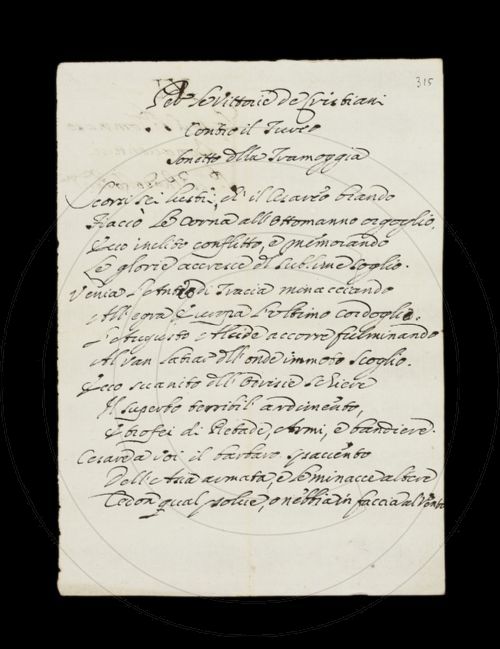 315
Per le Vittorie de Cristiani
Contro il Turco
Sonetto della Tramoggia
Scorsi sei lustri, ch' il Cesareo brando
Fiaccò le Corna all' Ottomanno orgoglio,
Ecco inclito conflitto, e memorando
Le glorie accresce al sublime soglio.
Venia di Tracia minacciando
All' Europa l'ultimo cordoglio.
L'Augusto Alcide accorre fulminando
Al Van dell' onde immoto scoglio.
Ecco suanito dell' schiere
Il superbo terribil ardimento,
E trofei di Armi, e bandiere.
Cesare a voi il barbaro spauento
Dell' Asia armata, e le minacce altere
Cedon qual polue, o nebbia in faccia al Vento